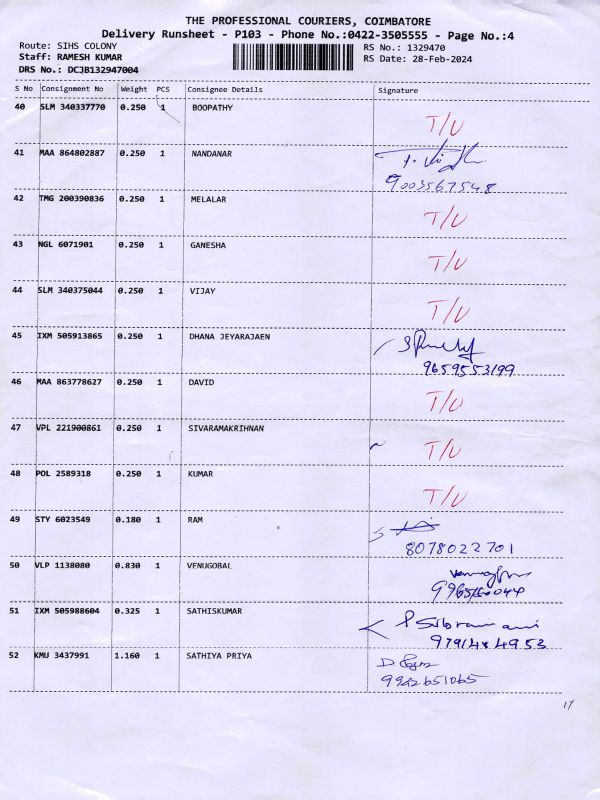 THE PROFESSIONAL COURIERS, COIMBATORE
Delivery Runsheet - P103 - Phone No.:0422-3505555 - Page No.:4
Route: SIHS COLONY RS No.: 1329470
Staff: RAMESH KUMAR RS Date: 28-Feb-2024
DRS No.: DCJB132947004
S No Consignment No Weight PCS Consignee Details Signature
40 SLM 340337770 0.250 1 BOOPATHY T/U
41 MAA 864802887 0.250 1 NANDANAR
9003567548
42 TMG 200390836 0.250 1 MELALAR T/U
43 NGL 6071901 0.250 1 GANESHA T/U
44 SLM 340375044 0.250 1 VIJAY T/U
45 IXM 505913865 0.250 1 DHANA JEYARAJAEN
9659553199
46 MAA 863778627 0.250 1 DAVID T/U
47 VPL 221900861 0.250 1 SIVARAMAKRIHNAN T/U
48 POL 2589318 0.250 1 KUMAR T/U
49 STY 6023549 0.180 1 RAM
8078022701
50 VLP 1138080 0.830 1 VENUGOBAL
51 IXM 505988604 0.325 1 SATHISKUMAR
9791484953
52 KMU 3437991 1.160 1 SATHIYA PRIYA
9922651065
17